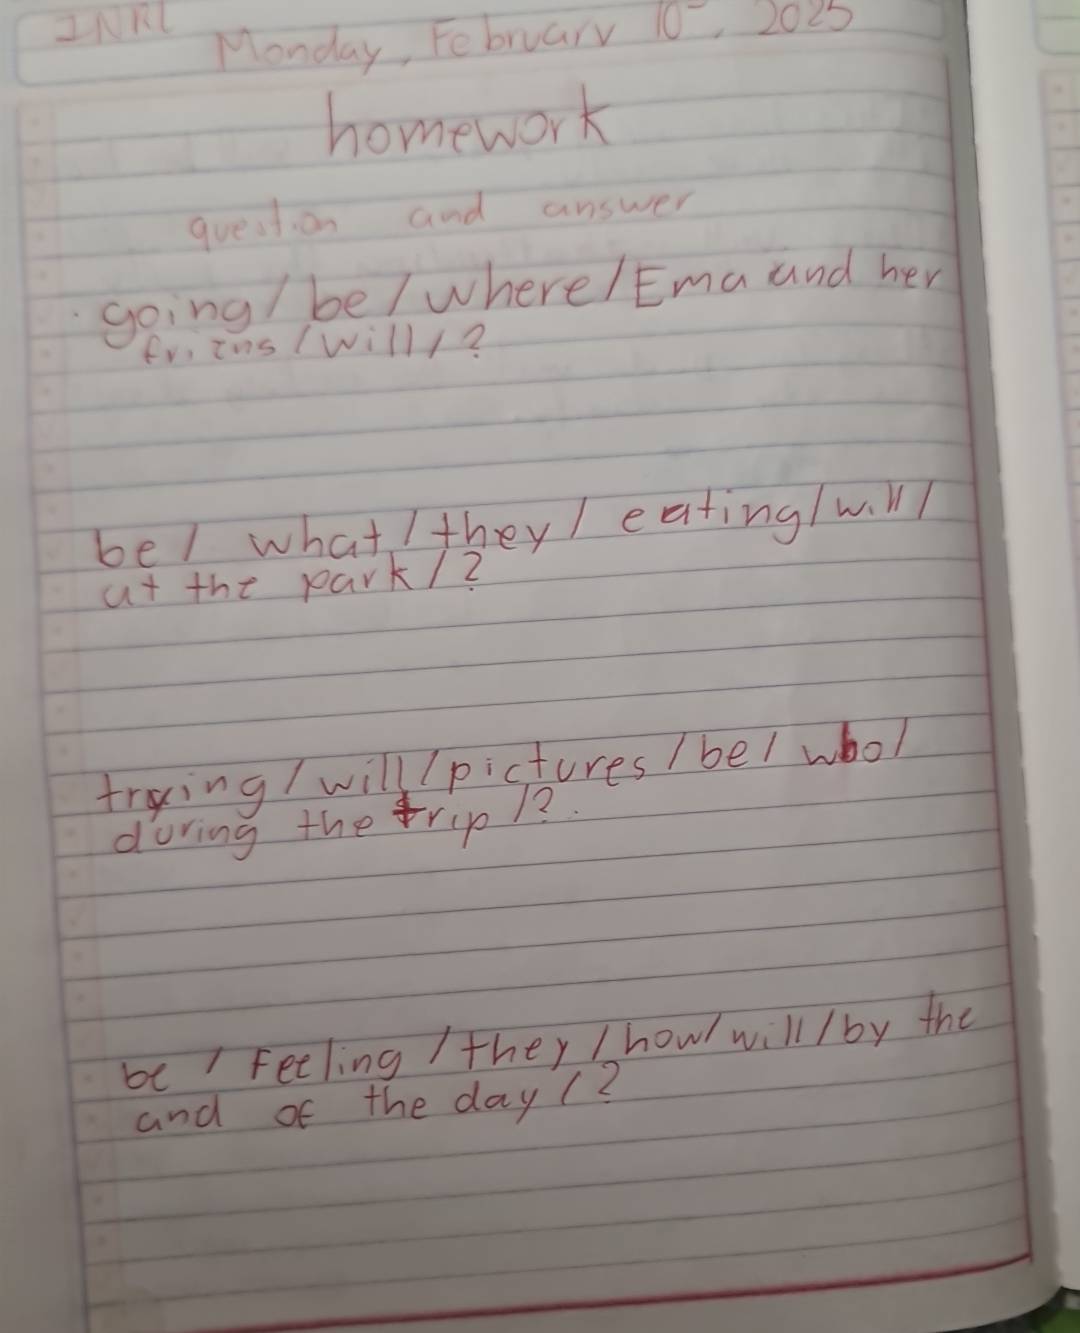 Monday, February 10, 2025
homework
question and answer
going / be / where / Ema and her
friens / will / ?
be / what / they / eating / will /
at the park / ?
trying / will / pictures / be / who /
during the trip / ?.
be / Feeling / they / how / will / by the
and of the day / ?